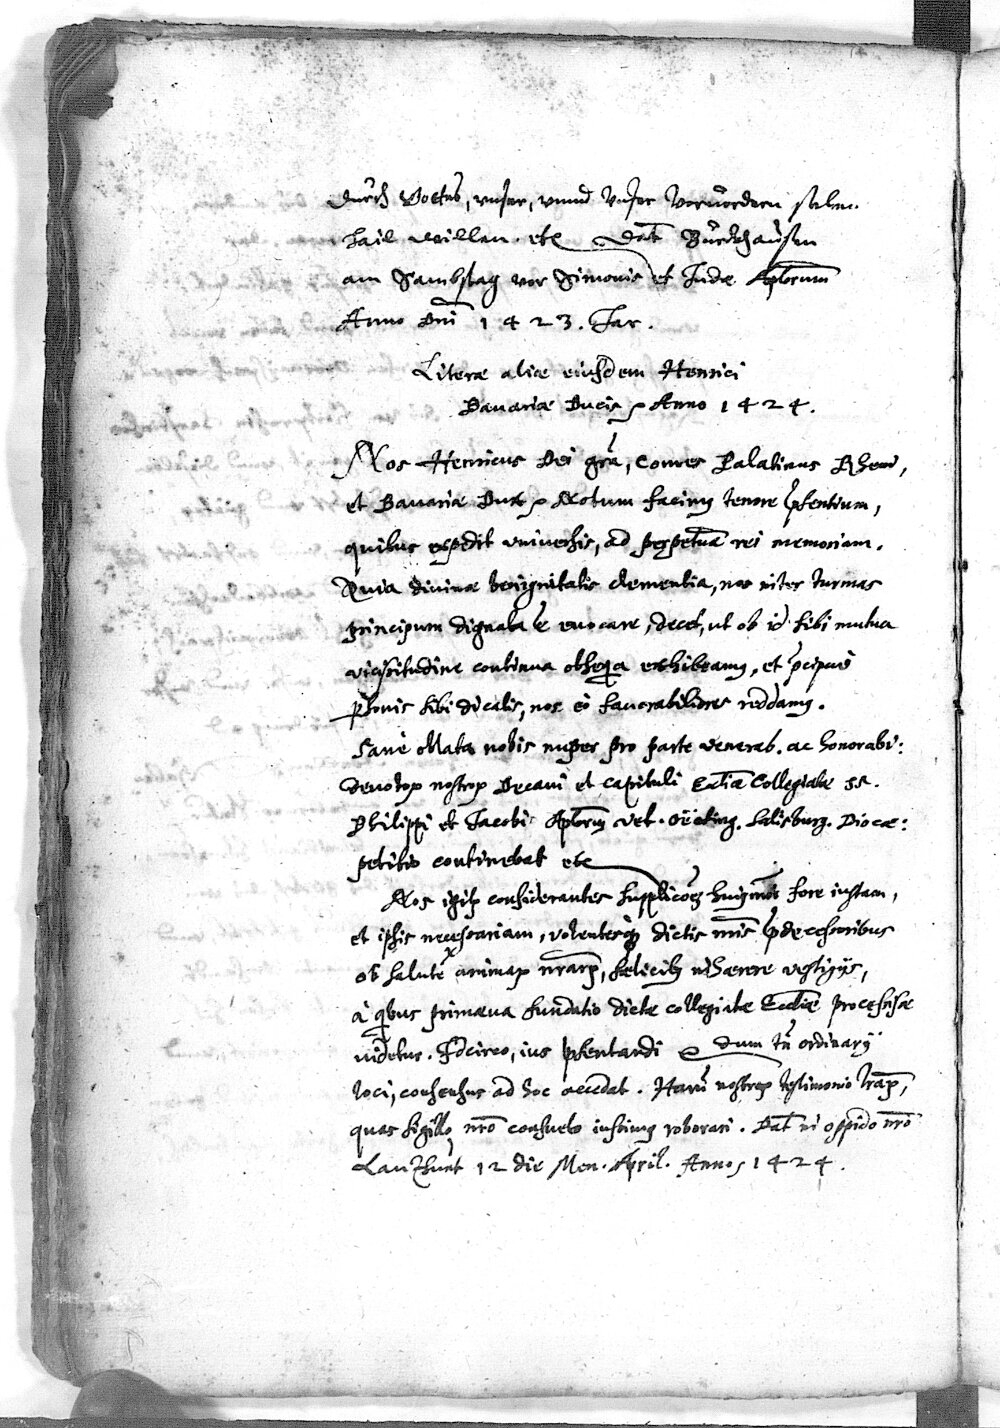 durch Gottes, unser, unnd unser Vorvordern selen
hail willen. etc Dat Burckhausen
am Sambstag vor Simonis et Judæ Aplorum
Anno Dni 1423. Jar.
Literæ aliæ eiusdem Henrici
Bavariæ Ducis Anno 1424.
Nos Henricus Dei gra, Comes Palatinus Rheni,
et Bavariæ Dux Notum facimg tenore pñtentium,
quibus expedit universis, ad perpetuã rei memoriam.
Quia divinæ benignitatis clementia, nos inter turmas
principum dignata ẽ evocare, decet, ut ob id sibi mutua
vicissitudine continua obseqa exhibeamg, et pcipuè
psonis sibi dicatis, nos eò favorabiliores reddamg.
Sanè oblata nobis nuper pro parte venerab. ac honorabi:
devotoꝝ nostroꝝ Decani et capituli Ecclîæ Collegiatæ SS.
Philippi et Jacobi Aplorum vet. Öeting. Salisburg. Diocæ:
petitio continebat etc
Nos igitʳ considerantes supplicoẽ huigmõi fore iustam,
et ipsis necessariam, volentesq dictis nris pdecessoribus
ob salutẽ animaꝝ nraꝝ, felicibʒ inhærere vestigijs,
à qbus primæva fundatio dictæ collegiatæ Ecclîæ processisse
videtur. Idcirco, ius pñtentandi dum tñ ordinarij
loci, consensus ad hoc accedat. Harũ nostraꝝ testimonio lraꝝ,
quas sigillo nro consueto iussimg roborari. Dat in oppido nrô
Lanzhuet 12 die Men. April. Anno 1424.